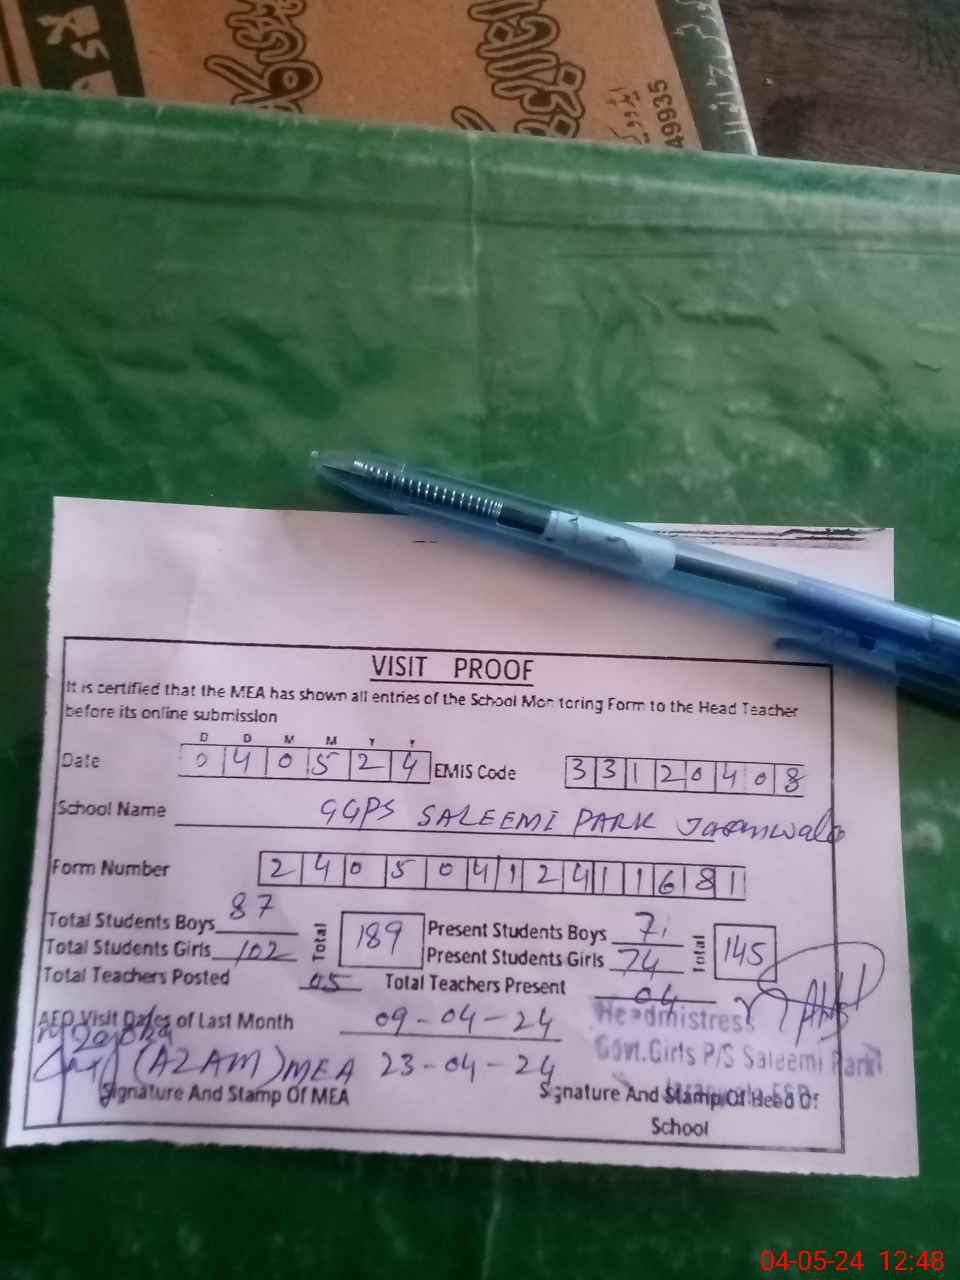 49935
VISIT PROOF
It is certified that the MEA has shown all entries of the School Monitoring Form to the Head Teacher
before its online submission
D D M M Y Y
Date 0 4 0 5 2 4 EMIS Code 3 3 1 2 0 4 0 8
School Name GGPS SALEEMI PARK Jaranwala
Form Number 2 4 0 5 0 4 1 2 4 1 1 6 8 1
Total Students Boys 87 Total 189 Present Students Boys 71 Total 145
Total Students Girls 102 Present Students Girls 74
Total Teachers Posted 05 Total Teachers Present 04
AEO Visit Dates of Last Month 09-04-24
Headmistress
Govt.Girls P/S Saleemi Park
(AZAM) MEA 23-04-24
Signature And Stamp Of MEA Signature And Stamp Of Head Of
School
04-05-24 12:48